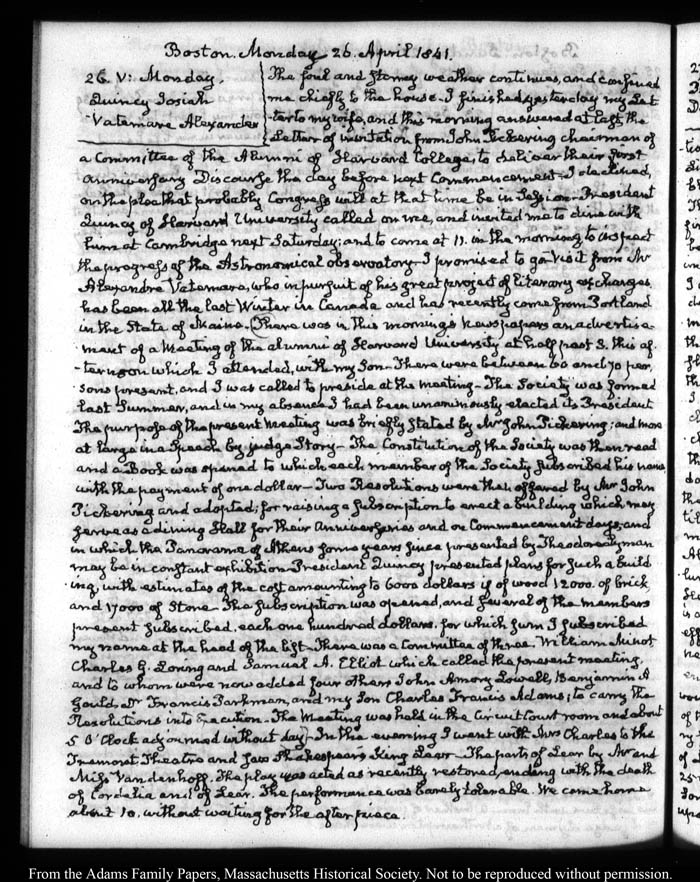 Boston. Monday 26. April 1841.
26. V: Monday. The foul and stormy weather continues, and confined
Quincy Josiah me chiefly to the house. I finished yesterday my Let
Vatemare Alexander -ter to my wife, and this morning answered at last, the
Letter of invitation from John Pickering chairman of
a Committee of the Alumni of Harvard College, to deliver their first
anniversary Discourse the day before next Commencement. I declined,
on the plea that probably Congress will at that time be in Session. President
Quincy of Harvard University called on me, and invited me to dine with
him at Cambridge next Saturday; and to come at 11. in the morning to inspect
the progress of the Astronomical observatory. I promised to go. Visit from Mr
Alexandre Vatemare, who in pursuit of his great project of literary exchanges,
has been all the last Winter in Canada and has recently come from Portland
in the State of Maine. There was in this morning's newspapers an advertise-
ment of a Meeting of the alumni of Harvard University at half past 3. this af-
-ternoon which I attended, with my Son. There were between 60 and 70 per-
sons present, and I was called to preside at the meeting. The Society was formed
last Summer, and in my absence I had been unanimously elected its President
The purpose of the present meeting was briefly stated by Mr John Pickering; and more
at large in a Speech by judge Story. The Constitution of the Society was then read
and a Book was opened to which each member of the Society subscribed his name
with the payment of one dollar. Two Resolutions were then offered by Mr John
Pickering and adopted; for raising a subscription to erect a building which may
serve as a dining Hall for their Anniversaries and on Commencement days; and
in which the Panorama of Athens some years since presented by Theodore Lyman
may be in constant exhibition. President Quincy presented plans for such a build
ing, with estimates of the cost amounting to 6000 dollars if of wood 12000. of brick
and 17000 of Stone. The subscription was opened, and several of the members
present subscribed, each one hundred dollars, for which sum I subscribed
my name at the head of the list. There was a Committee of three, William Minot
Charles G. Loring and Samuel A. Elliot which called the present meeting,
and to whom were now added four others John Amory Lowell, Benjamin A
Gould, Dr Francis Parkman, and my Son Charles Francis Adams; to carry the
Resolutions into Execution. The Meeting was held in the Circuit Court room and about
5 O'Clock adjourned without day. In the evening I went with Mrs Charles to the
Tremont Theatre and saw Shakespear's King Lear. The parts of Lear by Mr and
Miss Vandenhoff. The play was acted as recently restored, ending with the death
of Cordelia and of Lear. The performance was barely tolerable. We came home
about 10. without waiting for the afterpiece.
From the Adams Family Papers, Massachusetts Historical Society. Not to be reproduced without permission.